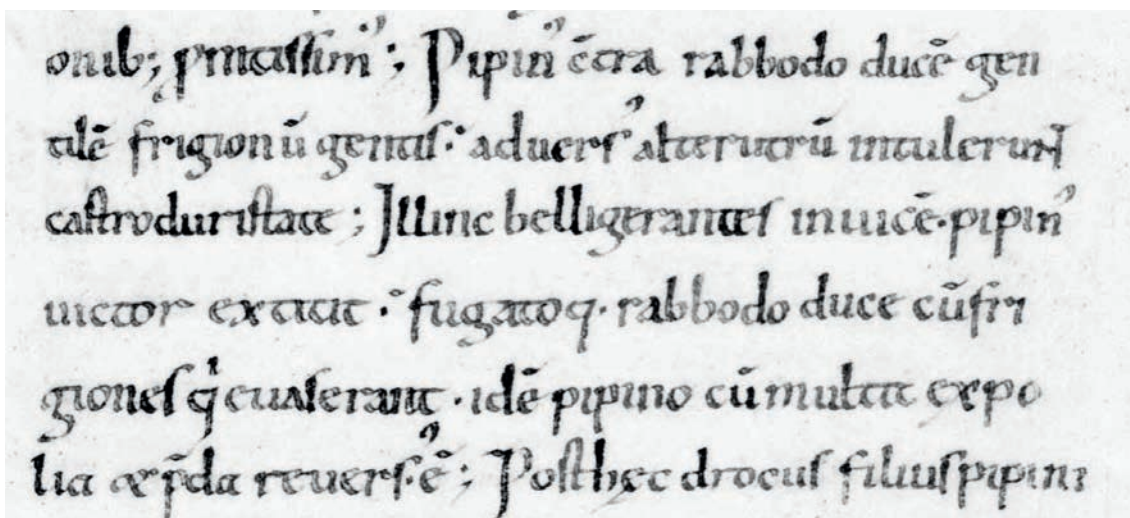 onib; p̱ntissim᾿; Pipin᾿ c̄tra rabbodo ducē gen
tilē frigionū gentis· adversꝰ alterutrū intulerunt
castro duristate; Illinc belligerantes inuicē· pipinꝰ
uictor extitit· fugatoq· rabbodo duce cū fri
giones q̇ euaserant· idē pipino cū multa expo
lia & p̄da reuers· ē; Post hęc drocus filius pipini